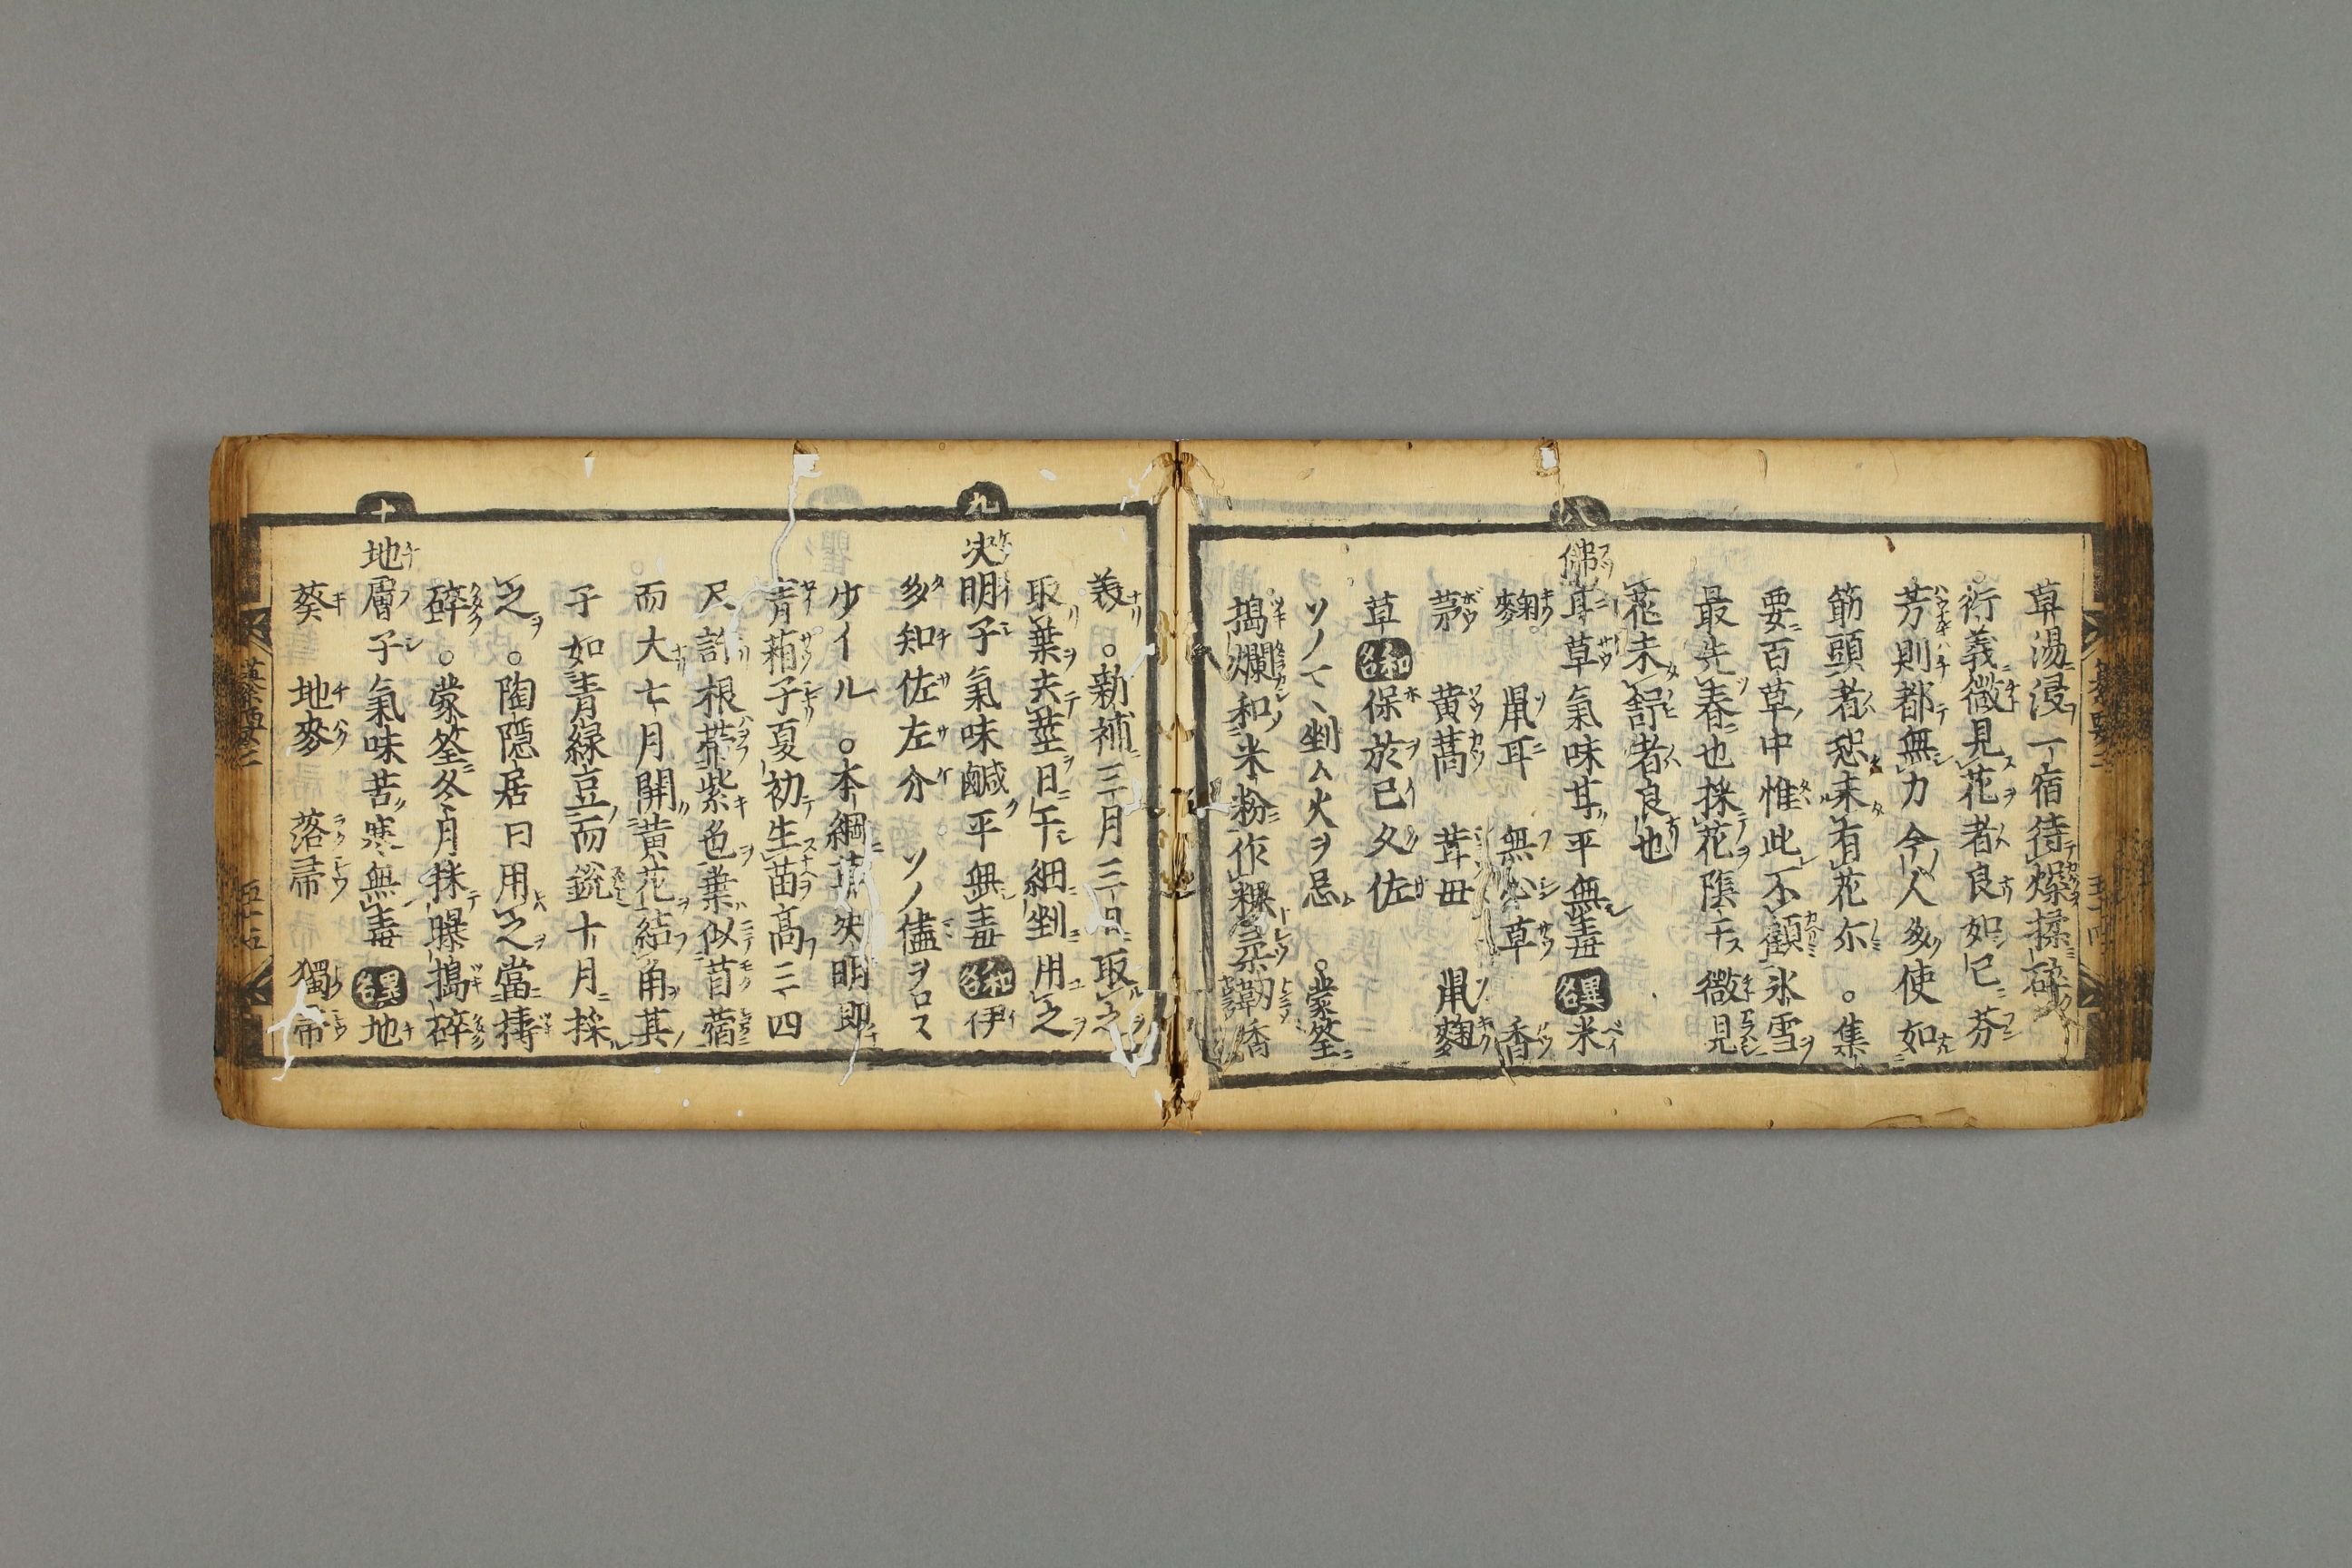 草湯浸一宿待燥揉碎
衍義微見花者良如已芬
芳則都無力今人多使如
筯頭者恐未有花尓○集
要百草中惟此不顧氷雪
最先春也採花陰干微見
花未舒者良也
八
佛耳草氣味甘平無毒異名米
麴 鼠耳 無心草 香
茅 黄蒿 茸母 鼠麴
草和名保於己久佐
ソノマヽ剉ム火ヲ忌 ○蒙筌
搗爛和米粉作粿 韌香
義○新補三月三日取之
取葉去莖日干細剉用之
九
决明子氣味鹹平無毒和名伊
多知佐左介 ソノ儘ヲロス
少イル ○本綱 决明即
青葙子夏初生苗高三四
尺許根帶紫色葉似苜蓿
而大七月開黄花結角其
子如青緑豆而鋭十月採
之○陶隠居曰用之當擣
碎○蒙筌冬月採曝搗碎
十
地膚子氣味苦寒無毒異名地
葵 地麥 落帚 獨帚